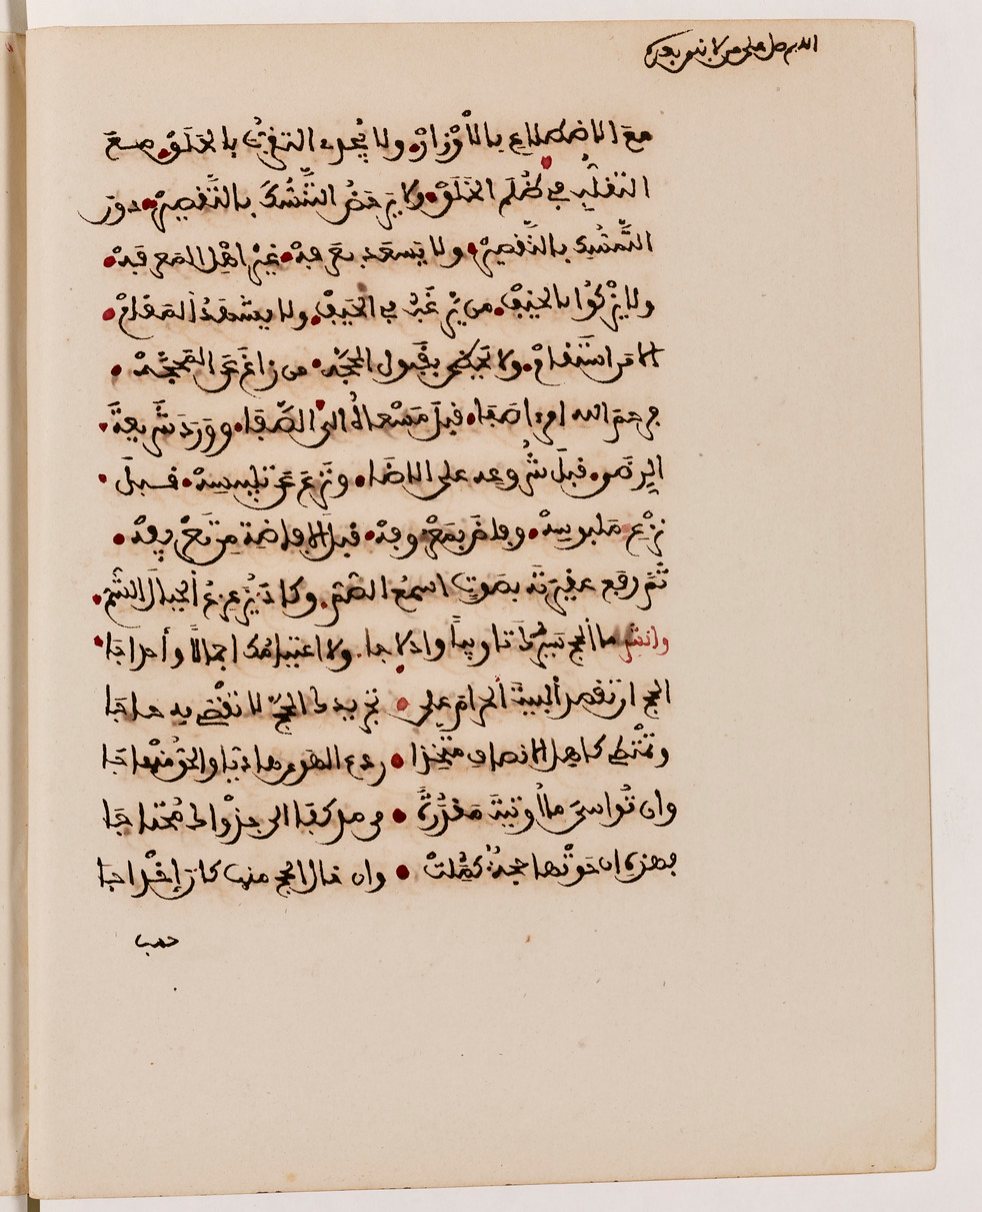 اللهم صل على من لا نبي بعده
مع الاضطلاع بالأوزار ولا يجدي التقرب بالحلق مع
التقلب في ظلم الخلق ولا يرحض التنسك بالتقصير درن
التمسك بالتقصير ولا يسعد بعرفة غير اهل المعرفة
ولا يزكوا بالخيف من يرغب في الحيف ولا يشهد المقام
الا من استقام ولا يحظى بقبول الحجة من زاغ عن المحجة
فرحم الله امرءا صفا قبل مسعاه الى الصفا وورد شريعة
الرضى قبل شروعه على الاضا ونزع عن تلبيسه قبل
نزع ملبوسه وفاض بمعروفه قبل الافاضة من تعريفه
ثم رفع عقيرته بصوت اسمع الصم وكاد يزعزع الجبال الشم
وانشد ما الحج سيرك تاويبا وادلاجا ولا اعتيامك اجمالا وأحداجا
الحج ان تقصد البيت الحرام على تجريدك الحج لا تقضي به حاجا
وتمتطي كاهل الانصاف متخذا ردع الهوى هاديا والحق منهاجا
وان تواسي ما أوتيت مقدرة من مد كفا الى جدواك محتاجا
فهذه ان حوتها حجة كملت وان خلا الحج منها كان إخداجا